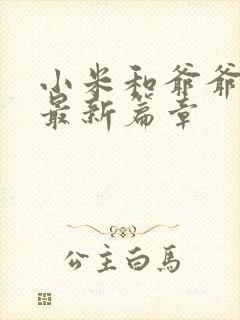 小米和爷爷
最新篇章
公主白馬